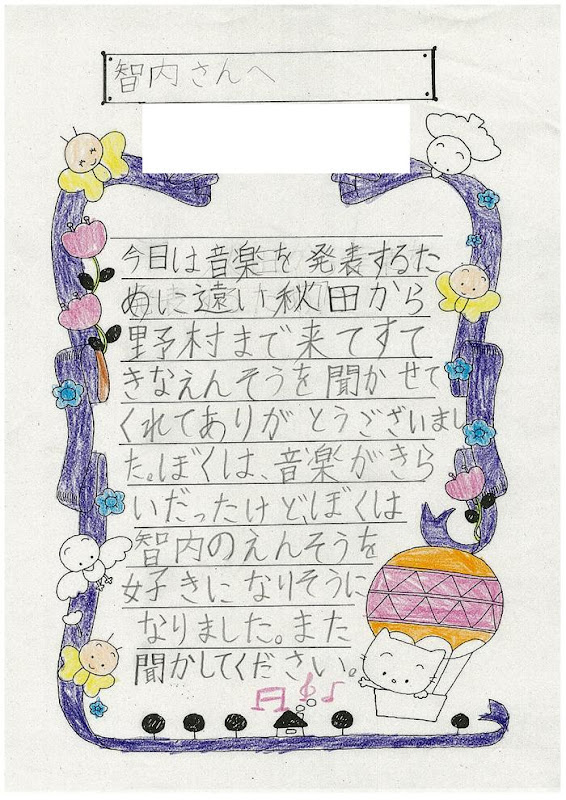 智内さんへ
今日は音楽を発表するた
めに遠い秋田から
野村まで来てすて
きなえんそうを聞かせて
くれてありがとうございまし
た。ぼくは、音楽がきら
いだったけど、ぼくは
智内のえんそうを
好きになりそうに
なりました。また
聞かしてください。